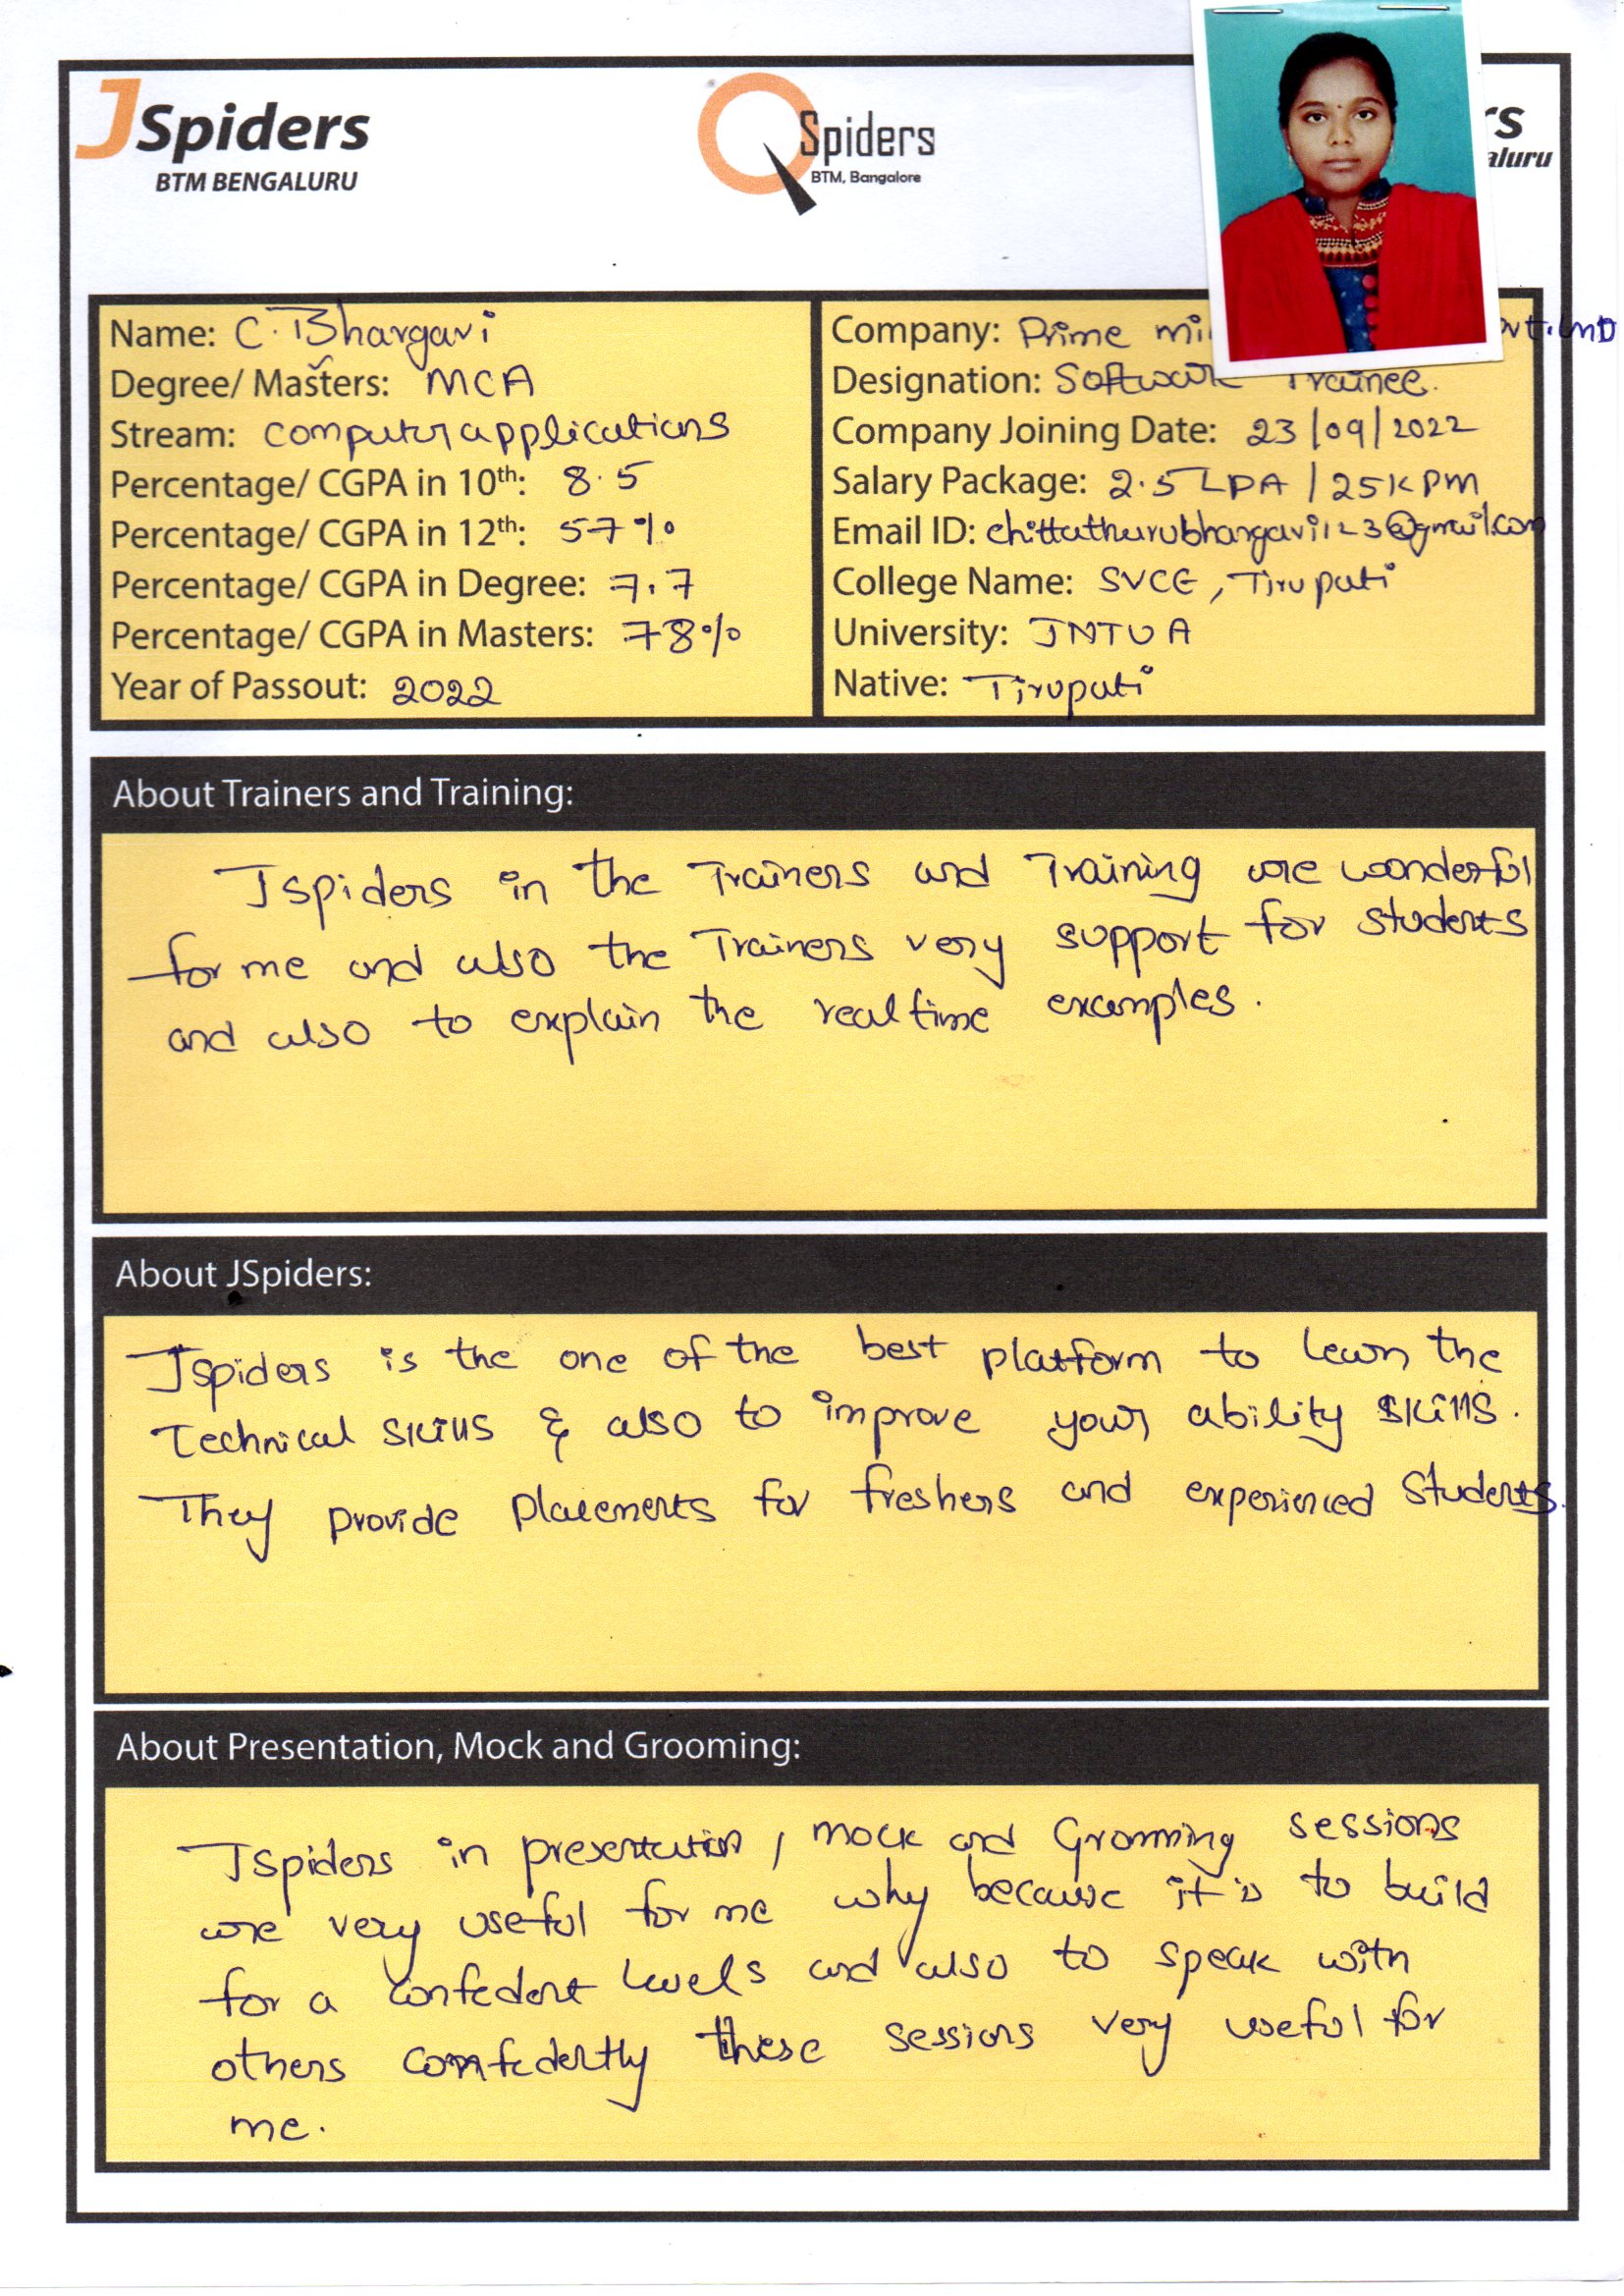 JSpiders
BTM BENGALURU
QSpiders
BTM, Bangalore
Name: C. Bhargavi
Degree/ Masters: MCA
Stream: computer applications
Percentage/ CGPA in 10th: 8.5
Percentage/ CGPA in 12th: 57%
Percentage/ CGPA in Degree: 7.7
Percentage/ CGPA in Masters: 78%
Year of Passout: 2022
Company: Prime
Designation: Software Trainee.
Company Joining Date: 23/09/2022
Salary Package: 2.5 LPA / 25K PM
Email ID: chittathurubhargavi123@gmail.com
College Name: SVCE, Tirupati
University: JNTUA
Native: Tirupati
About Trainers and Training:
Jspiders in the Trainers and Training are wonderful
for me and also the Trainers very support for students
and also to explain the real time examples.
About JSpiders:
Jspiders is the one of the best platform to learn the
Technical skills & also to improve your ability skills.
They provide placements for freshers and experienced students.
About Presentation, Mock and Grooming:
Jspiders in presentation, mock and Gromming sessions
are very useful for me why because it is to build
for a confedent levels and also to speak with
others confedently these sessions very useful for
me.